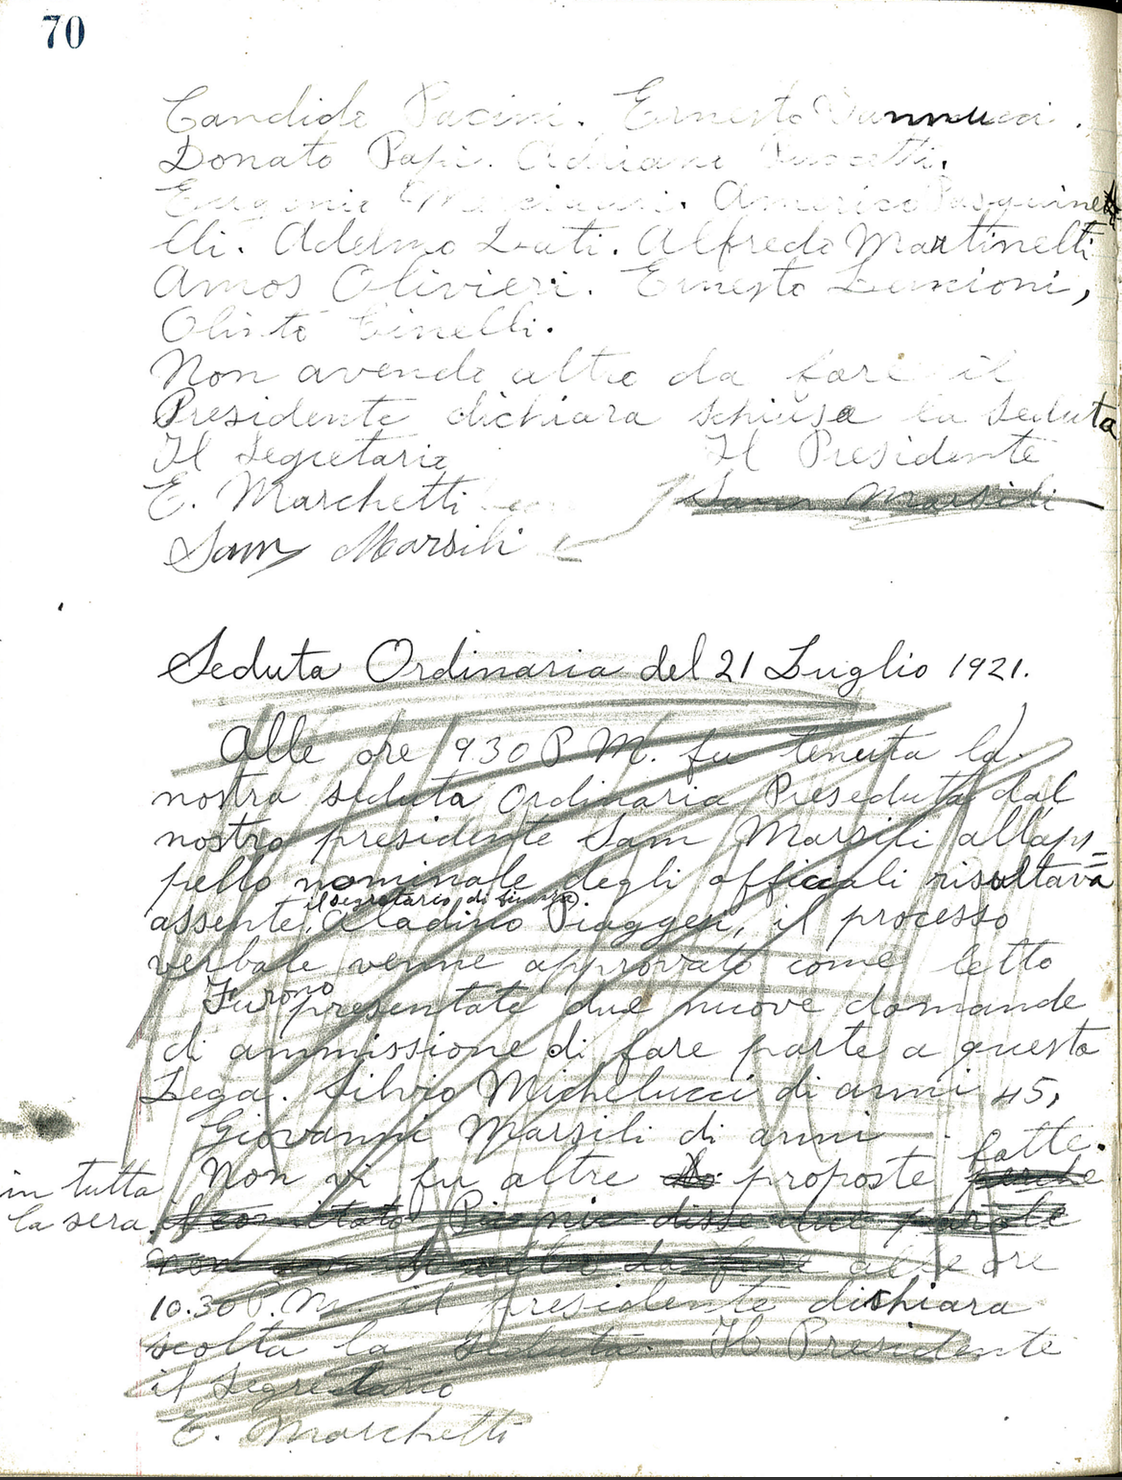 70
Candido Pacini. Ernesto Vannucci.
Donato Papi. Adriano Puccetti.
Eugenio Marcianri. Americo Pasquine
lli. Adelmo Lati. Alfredo Martinelli
Amos Olivieri. Ernesto Luncioni,
Olinto Cinelli.
Non avendo altro da fare il
Presidente dichiara schiusa la Seduta
Il Segretario Il Presidente
E. Marchetti Sam Marsili
Sam Marsili
Seduta Ordinaria del 21 Luglio 1921.
Alle ore 9.30 P.M. fu tenuta la
nostra seduta Ordinaria Preseduta dal
nostro presidente Sam Marsili allap=
pello nominale degli officiali risultava
il segretario di finanza
assente, Aladino Piaggesi, il processo
verbale venne approvato come letto
Furono presentate due nuove domande
di ammissione di fare parte a questa
Lega. Silvio Michelucci di anni 45,
Giovanni Marsili di anni —.
Non vi fu altre proposte perche fatte.
in tutta
la sera. il comitato Picnic disse due parole
non avendo altro da fare alle ore
10.30 P.M. il presidente dichiara
scolta la Seduta. Il Presidente
il Segretario
E. Marchetti